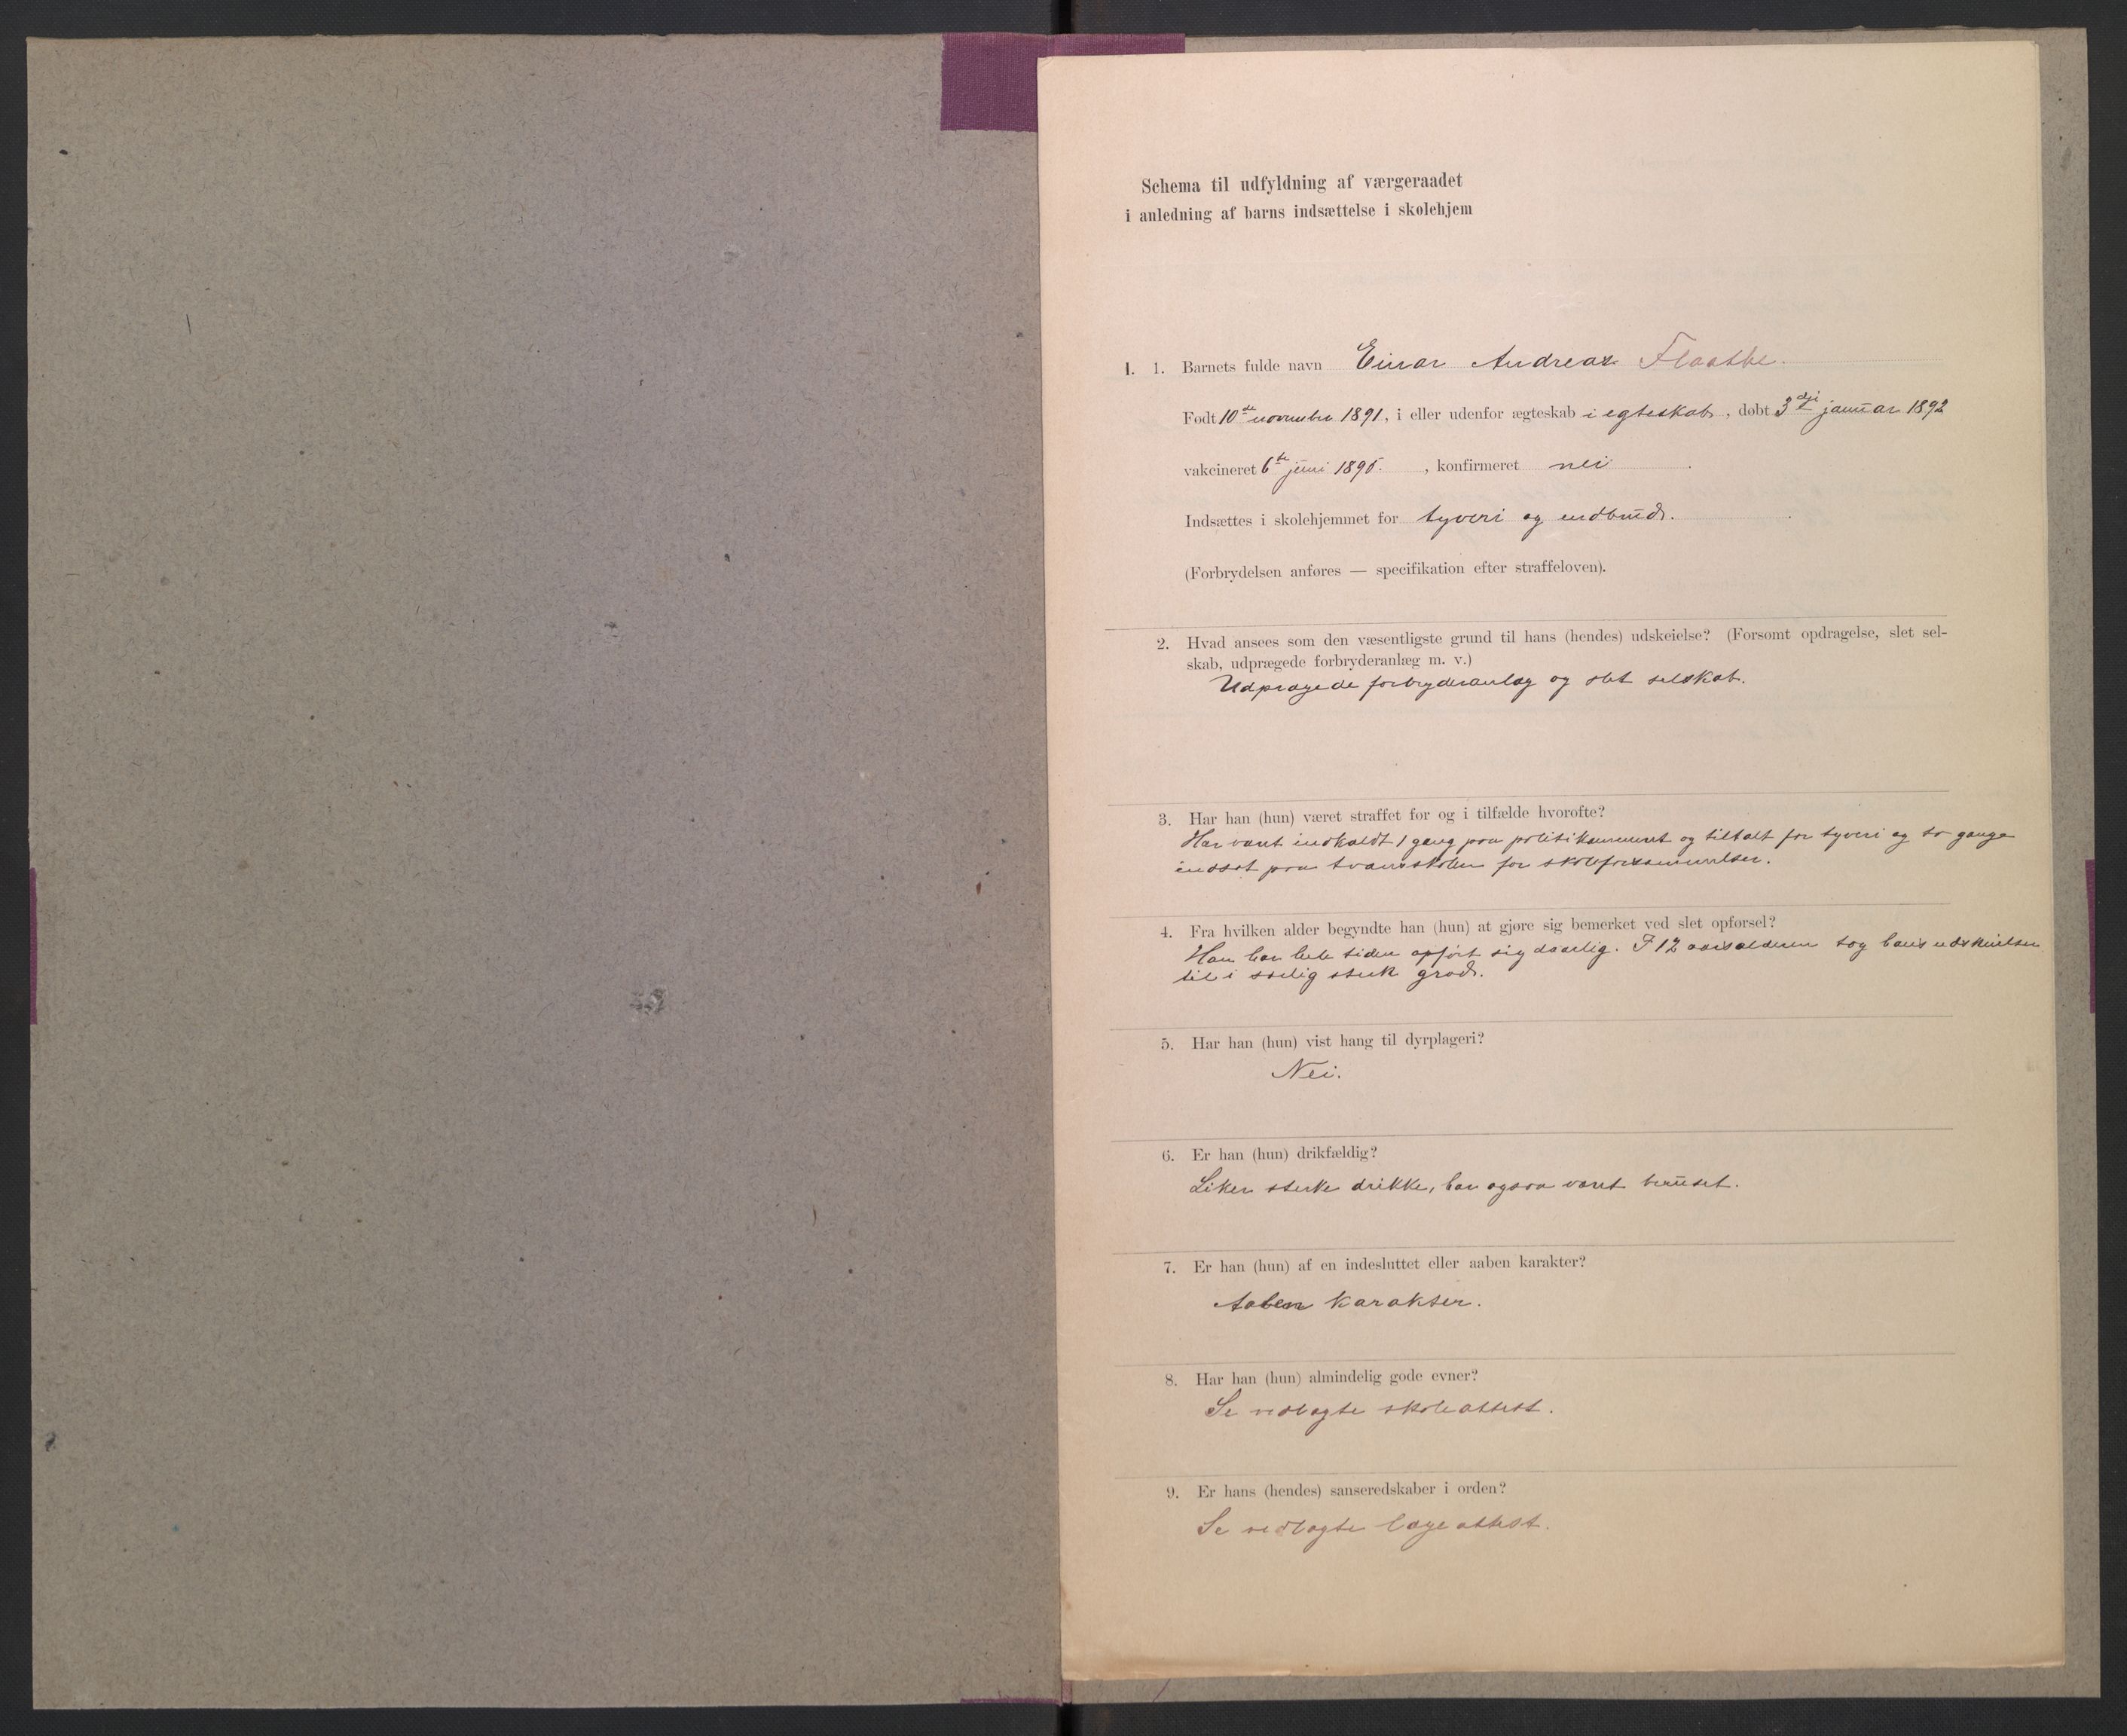 Schema til udfyldning af værgeraadet
i anledning af barns indsættelse i skolehjem
I. 1. Barnets fulde navn Einar Andreas Flaathe.
Født 10de november 1891, i eller udenfor ægteskab i egteskab, døbt 3dje januar 1892
vakcineret 6te juni 1895. , konfirmeret nei .
Indsættes i skolehjemmet for tyveri og indbrud.
(Forbrydelsen anføres — specifikation efter straffeloven).
2. Hvad ansees som den væsentligste grund til hans (hendes) udskeielse? (Forsømt opdragelse, slet sel-
skab, udprægede forbryderanlæg m. v.)
Udprægede forbryderanlæg og slet selskab.
3. Har han (hun) været straffet før og i tilfælde hvorofte?
Har været indkaldt 1 gang paa politikammeret og tiltalt for tyveri og to gange
indsat paa tvangsskolen for skoleforsømmelser.
4. Fra hvilken alder begyndte han (hun) at gjøre sig bemerket ved slet opførsel?
Han har hele tiden opført sig daarlig. I 12 aarsalderen tog hans udskeielser
til i særlig sterk grad.
5. Har han (hun) vist hang til dyrplageri?
Nei.
6. Er han (hun) drikfældig?
Liker sterke drikke, har ogsaa været beruset.
7. Er han (hun) af en indesluttet eller aaben karakter?
Aaben karakter.
8. Har han (hun) almindelig gode evner?
Se vedlagte skoleattest.
9. Er hans (hendes) sanseredskaber i orden?
Se vedlagte lægeattest.